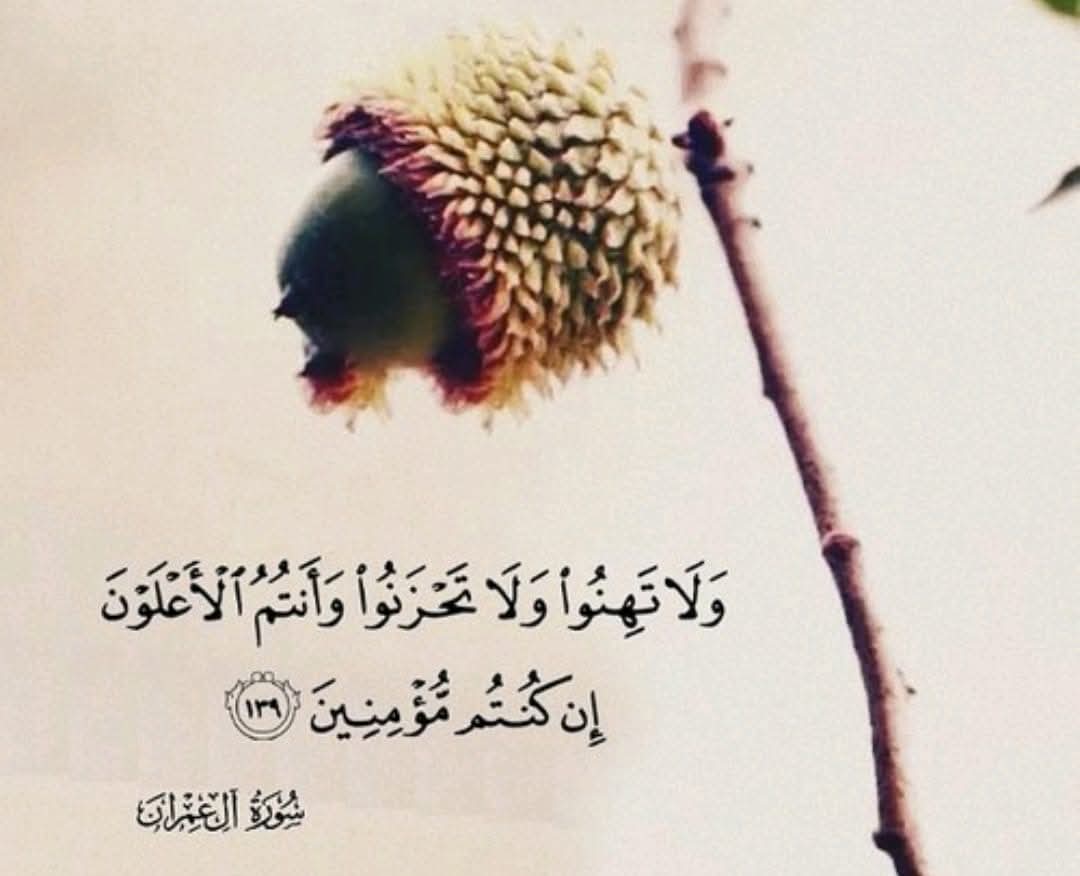 وَلَا تَهِنُوا۟ وَلَا تَحْزَنُوا۟ وَأَنتُمُ ٱلْأَعْلَوْنَ
إِن كُنتُم مُّؤْمِنِينَ ١٣٩
سُورَةُ آلِ عِمْرَانَ